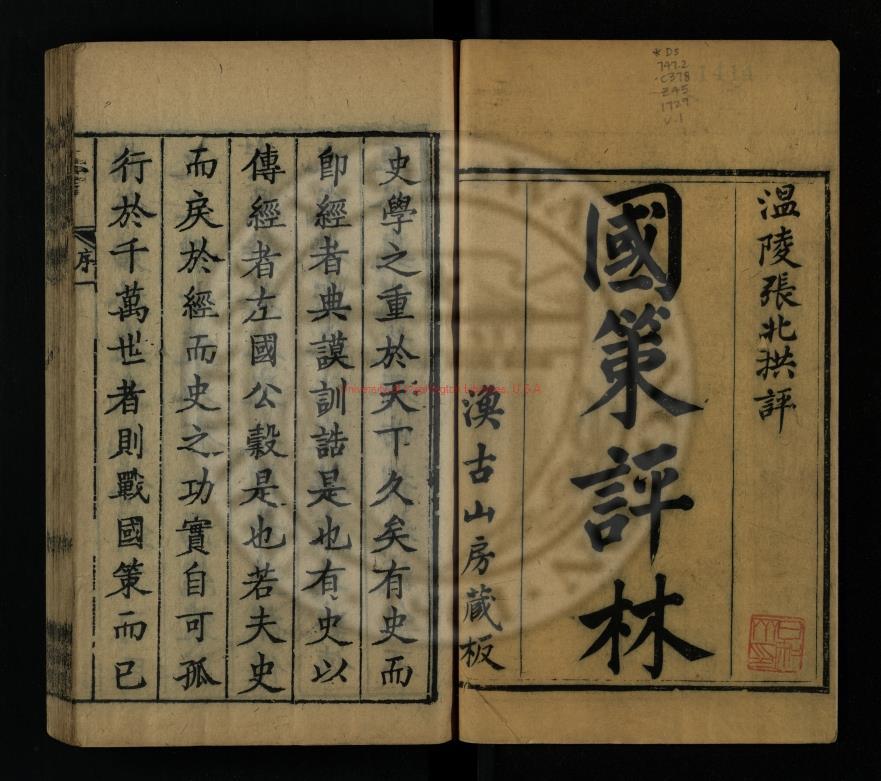 温陵張北拱評
國策評林
漁古山房藏板
*DS
747.2
.C378
Z45
1729
v.1
史學之重於天下久矣有史而
卽經者典謨訓誥是也有史以
傳經者左國公穀是也若夫史
而戾於經而史之功實自可孤
行於千萬世者則戰國策而已
序一